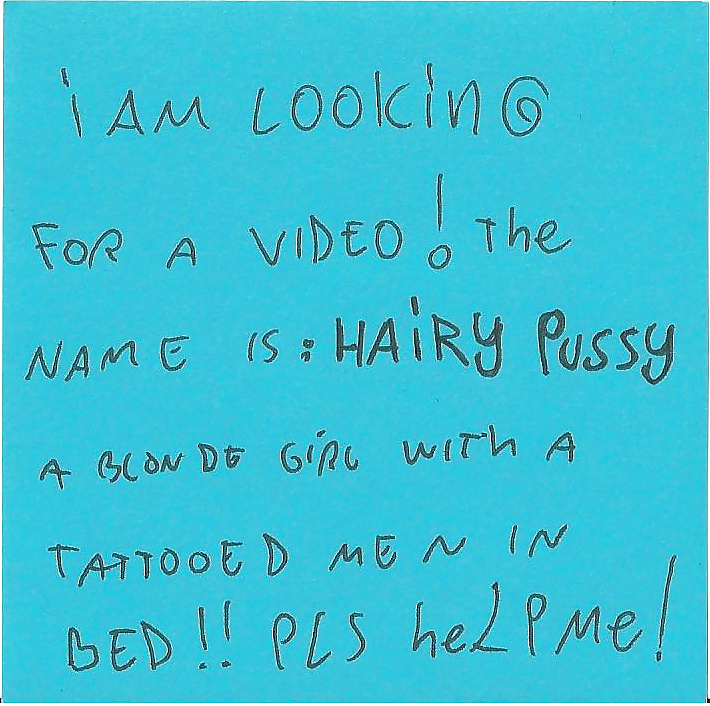 i AM LOOKiNG
FOR A VIDEO! The
NAME IS: HAiRY PUSSY
A BLONDE GiRL WITh A
TATTOOED MEN IN
BED!! PLS heLP Me!